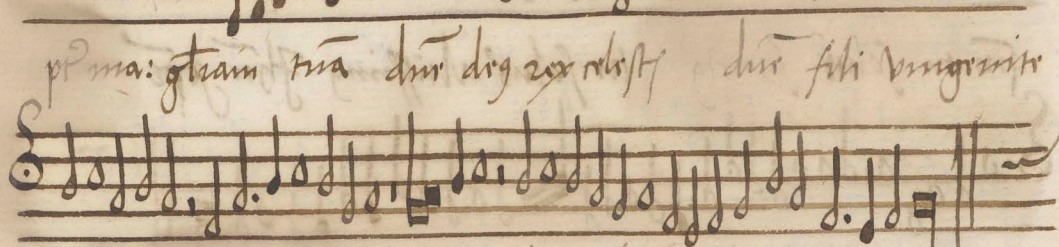 ptˀ ma: gl̄iam tuā dn̄e deꝰ rex celestꝭ dn̄e fili vnigenite